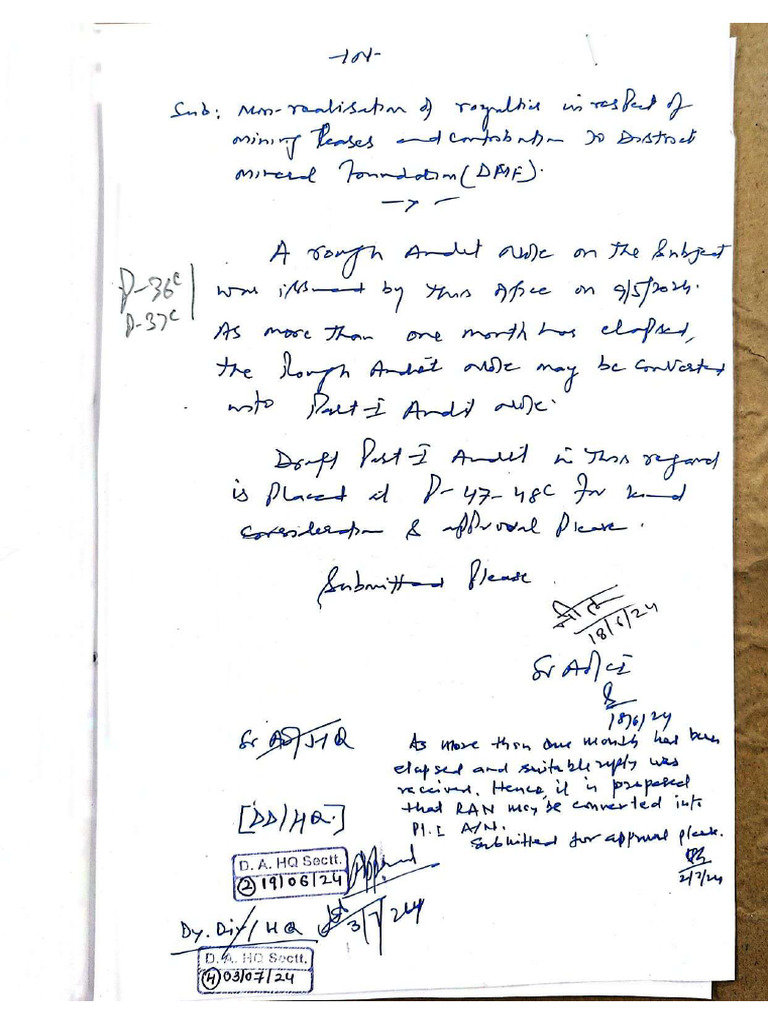 Sub: Non-realisation of royalties in respect of
mining leases and contribution to District
mineral Foundation (DMF).
A rough Audit Note on the Subject
P-36c
P-37c
was issued by this office on 9/5/2024.
As more than one month has elapsed,
the Rough Audit Note may be converted
into Part-I Audit Note.
Draft Part-I Audit in this regard
is placed at P-47-48c for kind
consideration & approval Please.
Submitted Please
18/6/24
Sr AO/CI
18/6/24
Sr AO/HQ
As more than one month has been
elapsed and suitable reply was
received. Hence, it is proposed
that RAN may be converted into
Pt. I A/N.
Submitted for approval please.
2/7/24
[DD/HQ.]
D. A. HQ Sectt.
2 19/06/24
Approved
3/7/24
Dy. Dir/HQ
D. A. HQ Sectt.
4 03/07/24